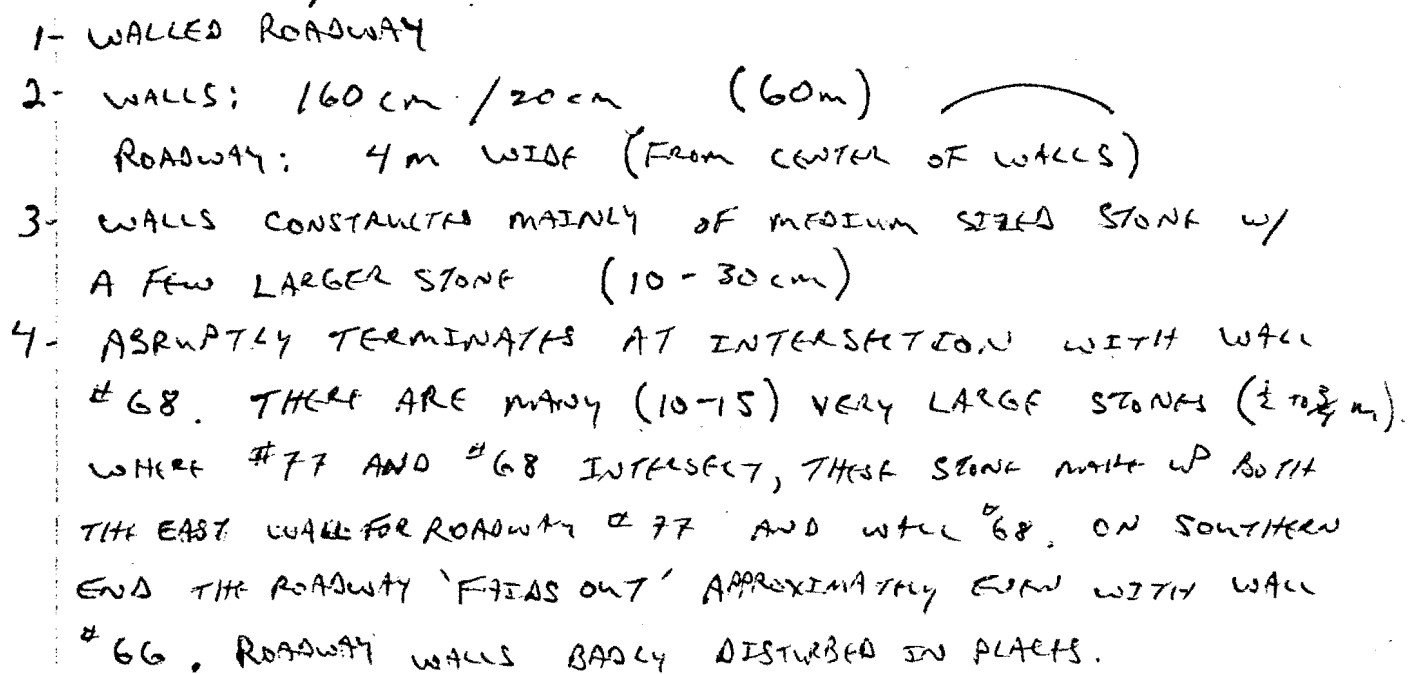 1- WALLED ROADWAY
2- WALLS: 160 cm /20 cm (60m)
ROADWAY: 4 m WIDE (FROM CENTER OF WALLS)
3- WALLS CONSTRUCTED MAINLY OF MEDIUM SIZED STONE w/
A FEW LARGER STONE (10-30 cm)
4- ABRUPTLY TERMINATES AT INTERSECTION WITH WALL
#68. THERE ARE MANY (10-15) VERY LARGE STONES (½ TO ¾ m).
WHERE #77 AND #68 INTERSECT, THESE STONE MAKE UP BOTH
THE EAST WALL FOR ROADWAY #77 AND WALL #68. ON SOUTHERN
END THE ROADWAY 'FAIDS OUT' APPROXIMATELY EVEN WITH WALL
#66. ROADWAY WALLS BADLY DISTURBED IN PLACES.